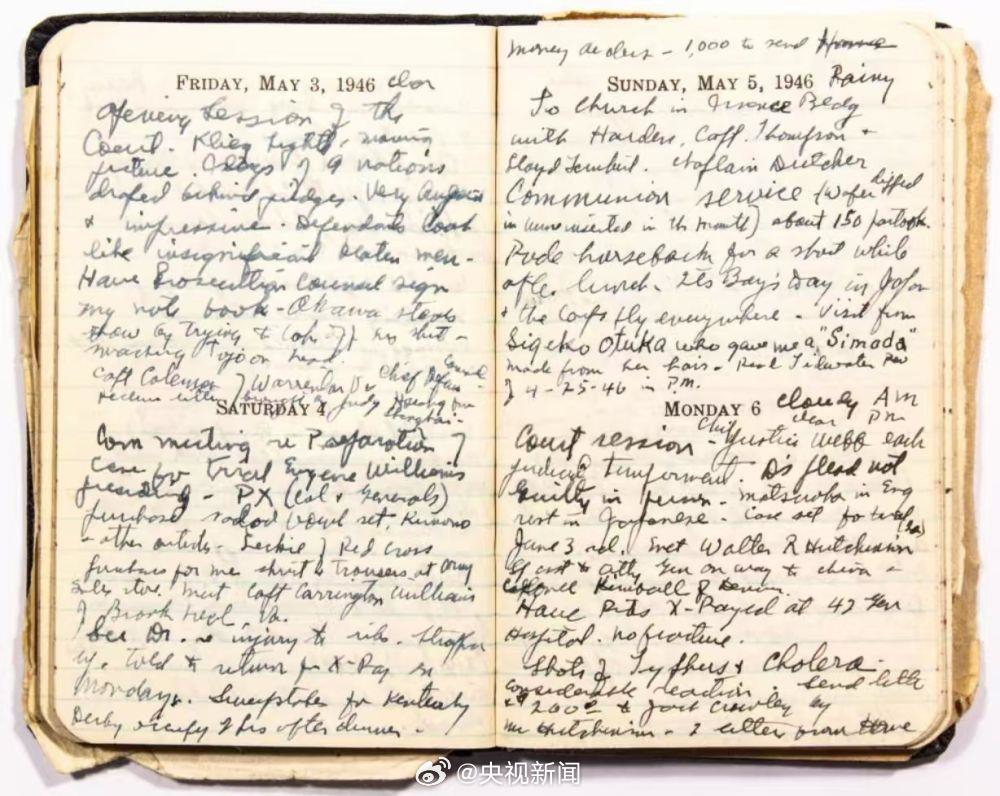 FRIDAY, MAY 3, 1946 clear
Opening Session of the
Court. Klieg lights, moving
picture. Flags of 9 nations
draped behind judges. Very August
& impressive. Defendants look
like insignificant little men.
Have Prosecution Counsel sign
my note book - Okawa steals
show by trying to take off his shirt -
smacking Tojo on head.
Capt Coleman Chief Defense Counsel
receive letter brought by Judy from
Shanghai.
SATURDAY 4
Com meeting re Preparation of
Case for trial Eugene Williams
presiding - PX (Col & Generals)
purchase salad bowl set, Kimono
& other articles - Leckie of Red Cross
purchases for me shirt & trousers at Army
Sales store. Meet Capt Carrington Williams
of Brook Neal, Va.
See Dr. re injury to ribs. Strapped
up. Told to return for X-Ray on
Monday. Sweepstakes for Kentucky
Derby after dinner -
money dealers - 1,000 to send Home
SUNDAY, MAY 5, 1946 Rainy
To Church in Finance Bldg
with Harders, Capt. Thompson &
Lloyd. Chaplain Dutcher
Communion service (wafer dipped
in wine inserted in the mouth) about 150 partook.
Rode horseback for a short while
after lunch - It's Boy's Day in Japan
& the Carps fly everywhere - Visit from
Sigeko Otuka who gave me a "Simada"
made from her hair - Read Tidewater Rev
of 4-25-46 in P.M.
MONDAY 6 cloudy AM
clear PM
Court session - Chief Justice Webb each
judicial temperament. Ds plead not
guilty in person - Matsuoka in Eng
rest in Japanese - Case set for trial
June 3rd. Met Walter R Hutchinson
Asst to Atty Gen on way to China -
Colonel Kimball of
Have Ribs X-Rayed at 42 Gen
Hospital. no fracture.
Shots of Typhus & Cholera
considerable reaction. Send letter
& 200 to Jack Crowley by
Mr Hutchinson - 2 letters from Home
@央视新闻